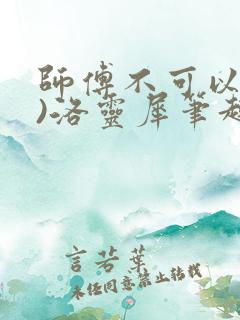 師傅不可以
)洛靈犀筆趣
言若葉
未經同意禁止轉載